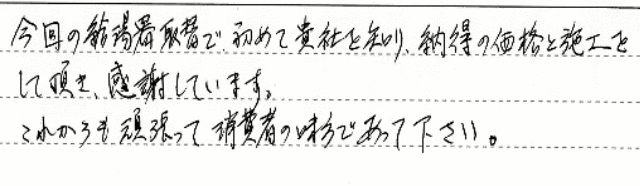 今回の給湯器取替で初めて貴社を知り、納得の価格と施工を
して頂き、感謝しています。
これからも頑張って消費者の味方であって下さい。